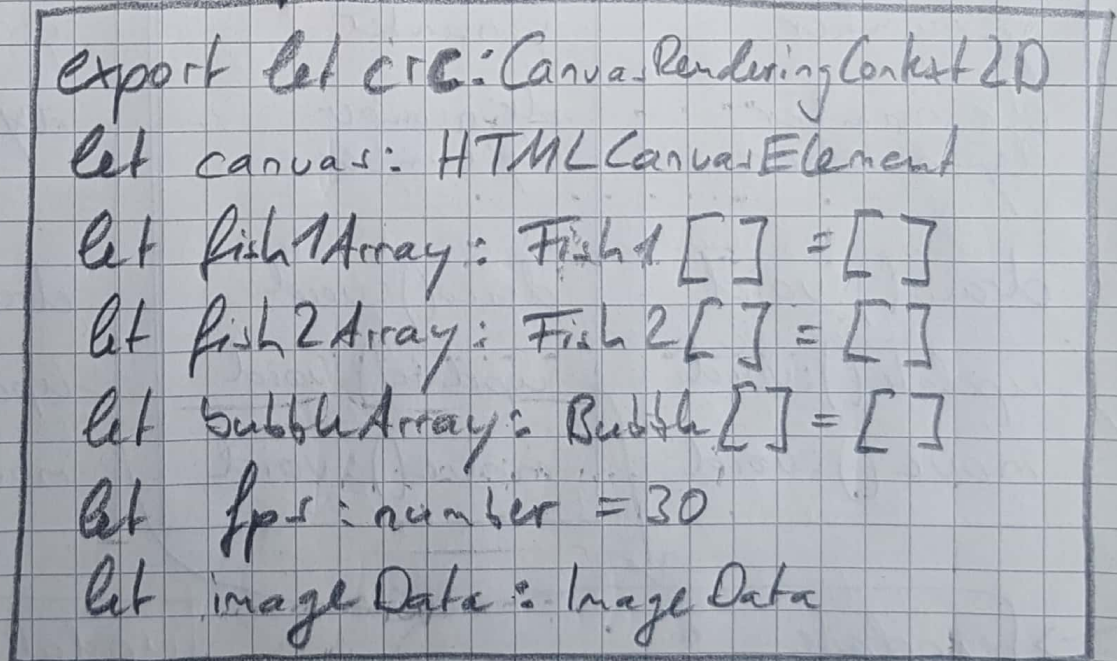 export let crc: CanvasRenderingContext2D
let canvas: HTMLCanvasElement
let fish1Array: Fish1[] = []
let fish2Array: Fish2[] = []
let bubbleArray: Bubble[] = []
let fps: number = 30
let imageData: ImageData